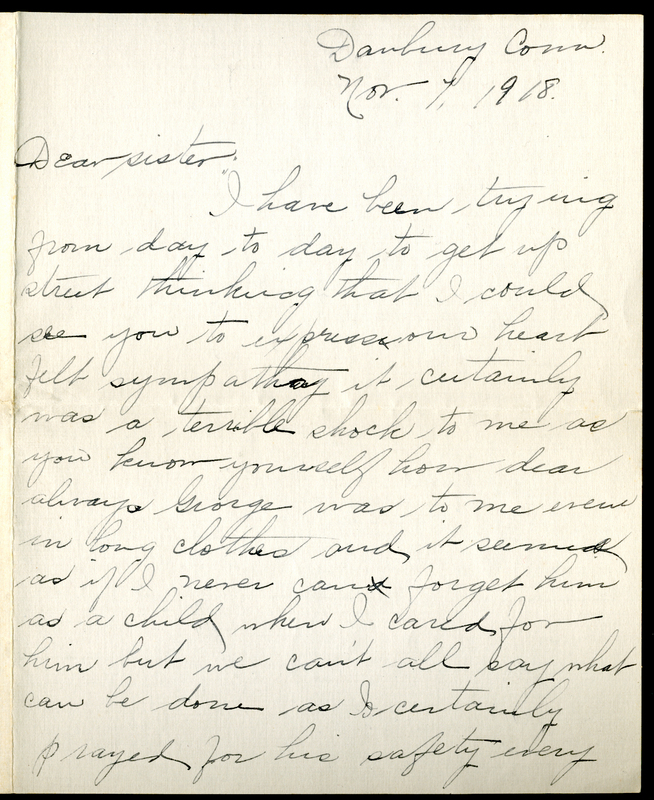 Danbury Conn.
Nov. 7, 1918.
Dear sister.
"I have been trying
from day to day to get up
street thinking that I could
see you to express our heart
felt sympathy it certainly
was a terrible shock to me as
you know yourself how dear
always George was to me even
in long clothes and it seemed
as if I never can forget him
as a child when I cared for
him but we can't all say what
can be done as I certainly
prayed for his safety every